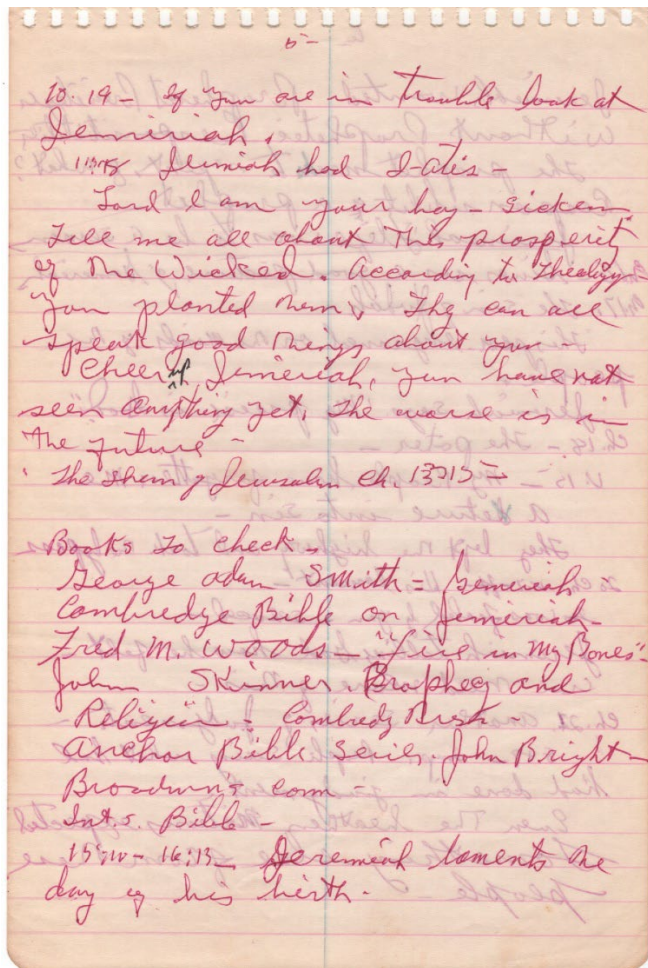 5-
10.19- If you are in trouble look at
Jemeriah.
Jemiah had I-atis-
Lord I am your boy- sicken
Tell me all about this prosperity
of the Wicked. According to Theology
you planted them, Thy can all
speak good things about you-
Cheer up Jemeriah, you have not
seen anything yet, the worse is in
the future-
The Shem of Jerusalm Ch. 13:15-
Books to check.
George adam Smith = Jemeriah
Combredge Bible on Jemeriah-
Fred M. Woods- "fire in My Bones"-
John Skinner. Prophecy and
Religion- Combredg
Anchor Bible Series. John Bright-
Broadmn's com-
Int.s. Bible-
15:10- 16:13- Jeremiah laments the
day of his birth.